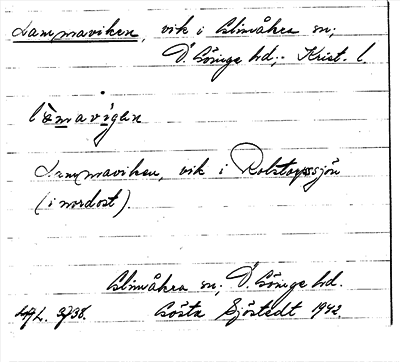 Lammaviken, vik i Glimåkra sn;
Ö. Göinge hd; Krist. l.
lamavigan
Lammaviken, vik i sjön
(i nordost).
Glimåkra sn; Ö. Göinge hd.
Gösta Sjöstedt 1942.